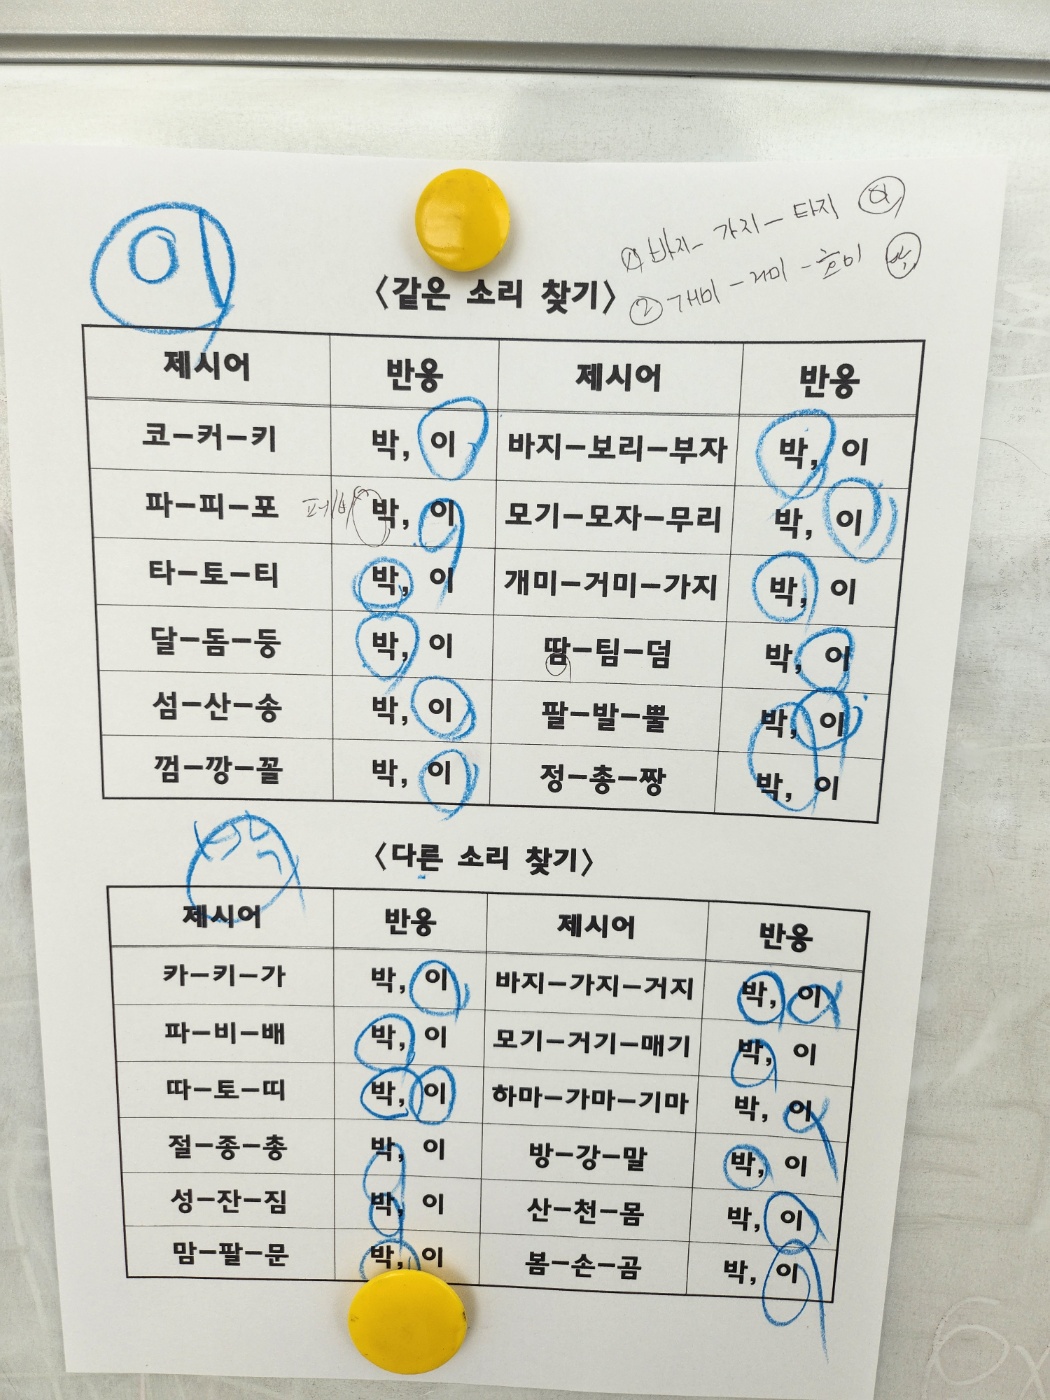 이
① 바지- 가지- 타지
② 개미 - 거미 - 호미 박
<같은 소리 찾기>
제시어 반응 제시어 반응
코-커-키 박, 이 바지-보리-부자 박, 이
파-피-포 박, 이 모기-모자-무리 박, 이
타-토-티 박, 이 개미-거미-가지 박, 이
달-돔-둥 박, 이 땀-팀-덤 박, 이
섬-산-송 박, 이 팔-발-뿔 박, 이
껌-깡-꼴 박, 이 정-총-짱 박, 이
<다른 소리 찾기>
제시어 반응 제시어 반응
카-키-가 박, 이 바지-가지-거지 박, 이
파-비-배 박, 이 모기-거기-매기 박, 이
따-토-띠 박, 이 하마-가마-기마 박, 이
절-종-총 박, 이 방-강-말 박, 이
성-잔-짐 박, 이 산-천-몸 박, 이
맘-팔-문 박, 이 봄-손-곰 박, 이